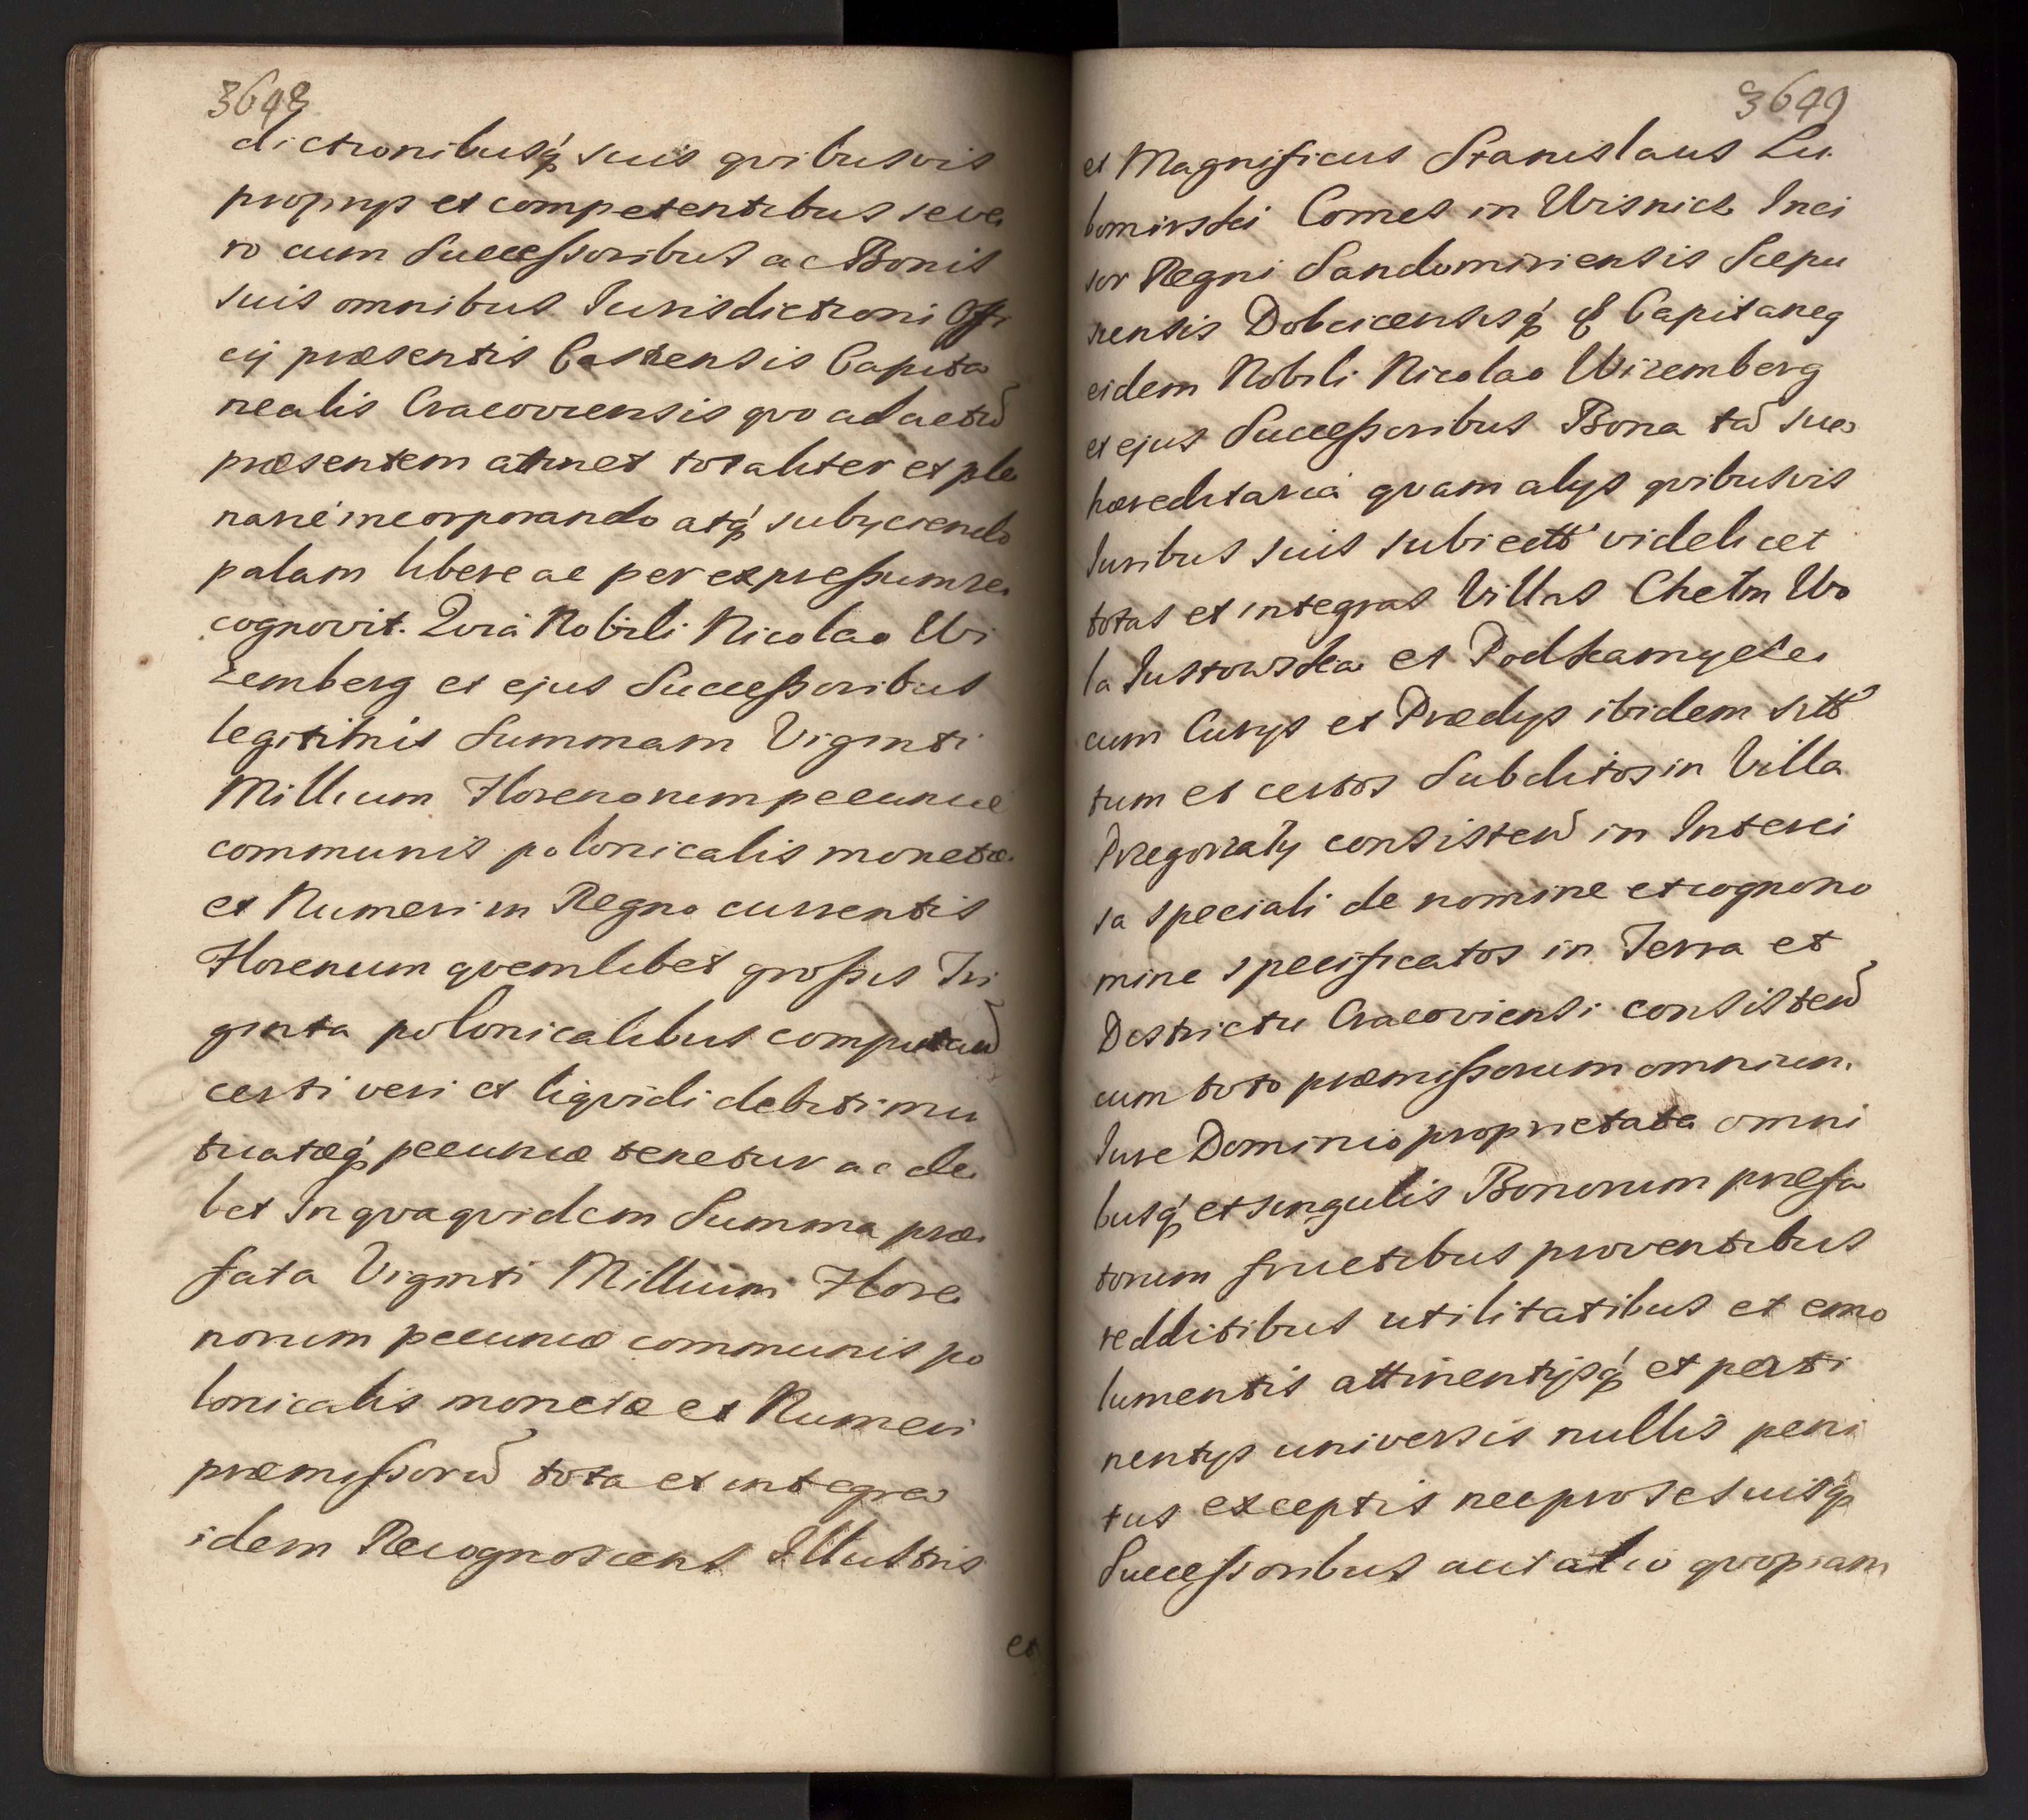 3648
dictionibusq́ suis qvibusvis
proprijs et competentibus seve
ro cum Successoribus ac Bonis
suis omnibus Iurisdictioni Offi
cij præsentis Castrensis Capita
nealis Cracoviensis qvo ad actũ
præsentem attinet totaliter et ple
nariè incorporando atq́ subijciendo
palam libere ac per expressum re
cognovit. Qvià Nobili Nicolao Wi
zemberg et ejus Successoribus
legitimis Summam Viginti
Millium Florenorum pecuniæ
communis polonicalis monetæ
et Numeri in Regno currentis
Florenum qvemlibet grossis Tri
ginta polonicalibus computan̄
certi veri et liqvidi debiti mu
tuatæq́ pecuniæ tenetur ac de
bet In qva qvidem Summa præ
fata Viginti Millium Flore
norum pecuniæ communis po
lonicalis monetæ et Numeri
præmissorũ tota et integra
idem Recognoscens Illustris
et
3649
et Magnificus Stanislaus Lu
bomirski Comes in Wisnicz Inci
sor Regni Sandomiriensis Scepu
siensis Dobcicensisq́ & Capitaneg
eidem Nobili Nicolao Wizemberg
et ejus Successoribus Bona tã sua
hæreditaria qvam alijs qvibusvis
Iuribus suis subiectt videlicet
totas et integras Villas Chełm Wo
la Iustowska et Podkamycze
cum Curijs et Prædijs ibidem sitt
tum et certos Subditos in Villa
Przegorzały consisten̄ in Interci
sa speciali de nomine et cogno
mine specificatos in Terra et
Districtu Cracoviensi consisten̄
cum toto præmissorum omnium
Iure Dominio proprietate omni
busq́ et singulis Bonorum præfa
torum fructibus proventibus
redditibus utilitatibus et emo
lumentis attinentijsq́ et perti
nentijs universis nullis peni
tus exceptis nec pro se suisq́
Successoribus aut alio qvopiam